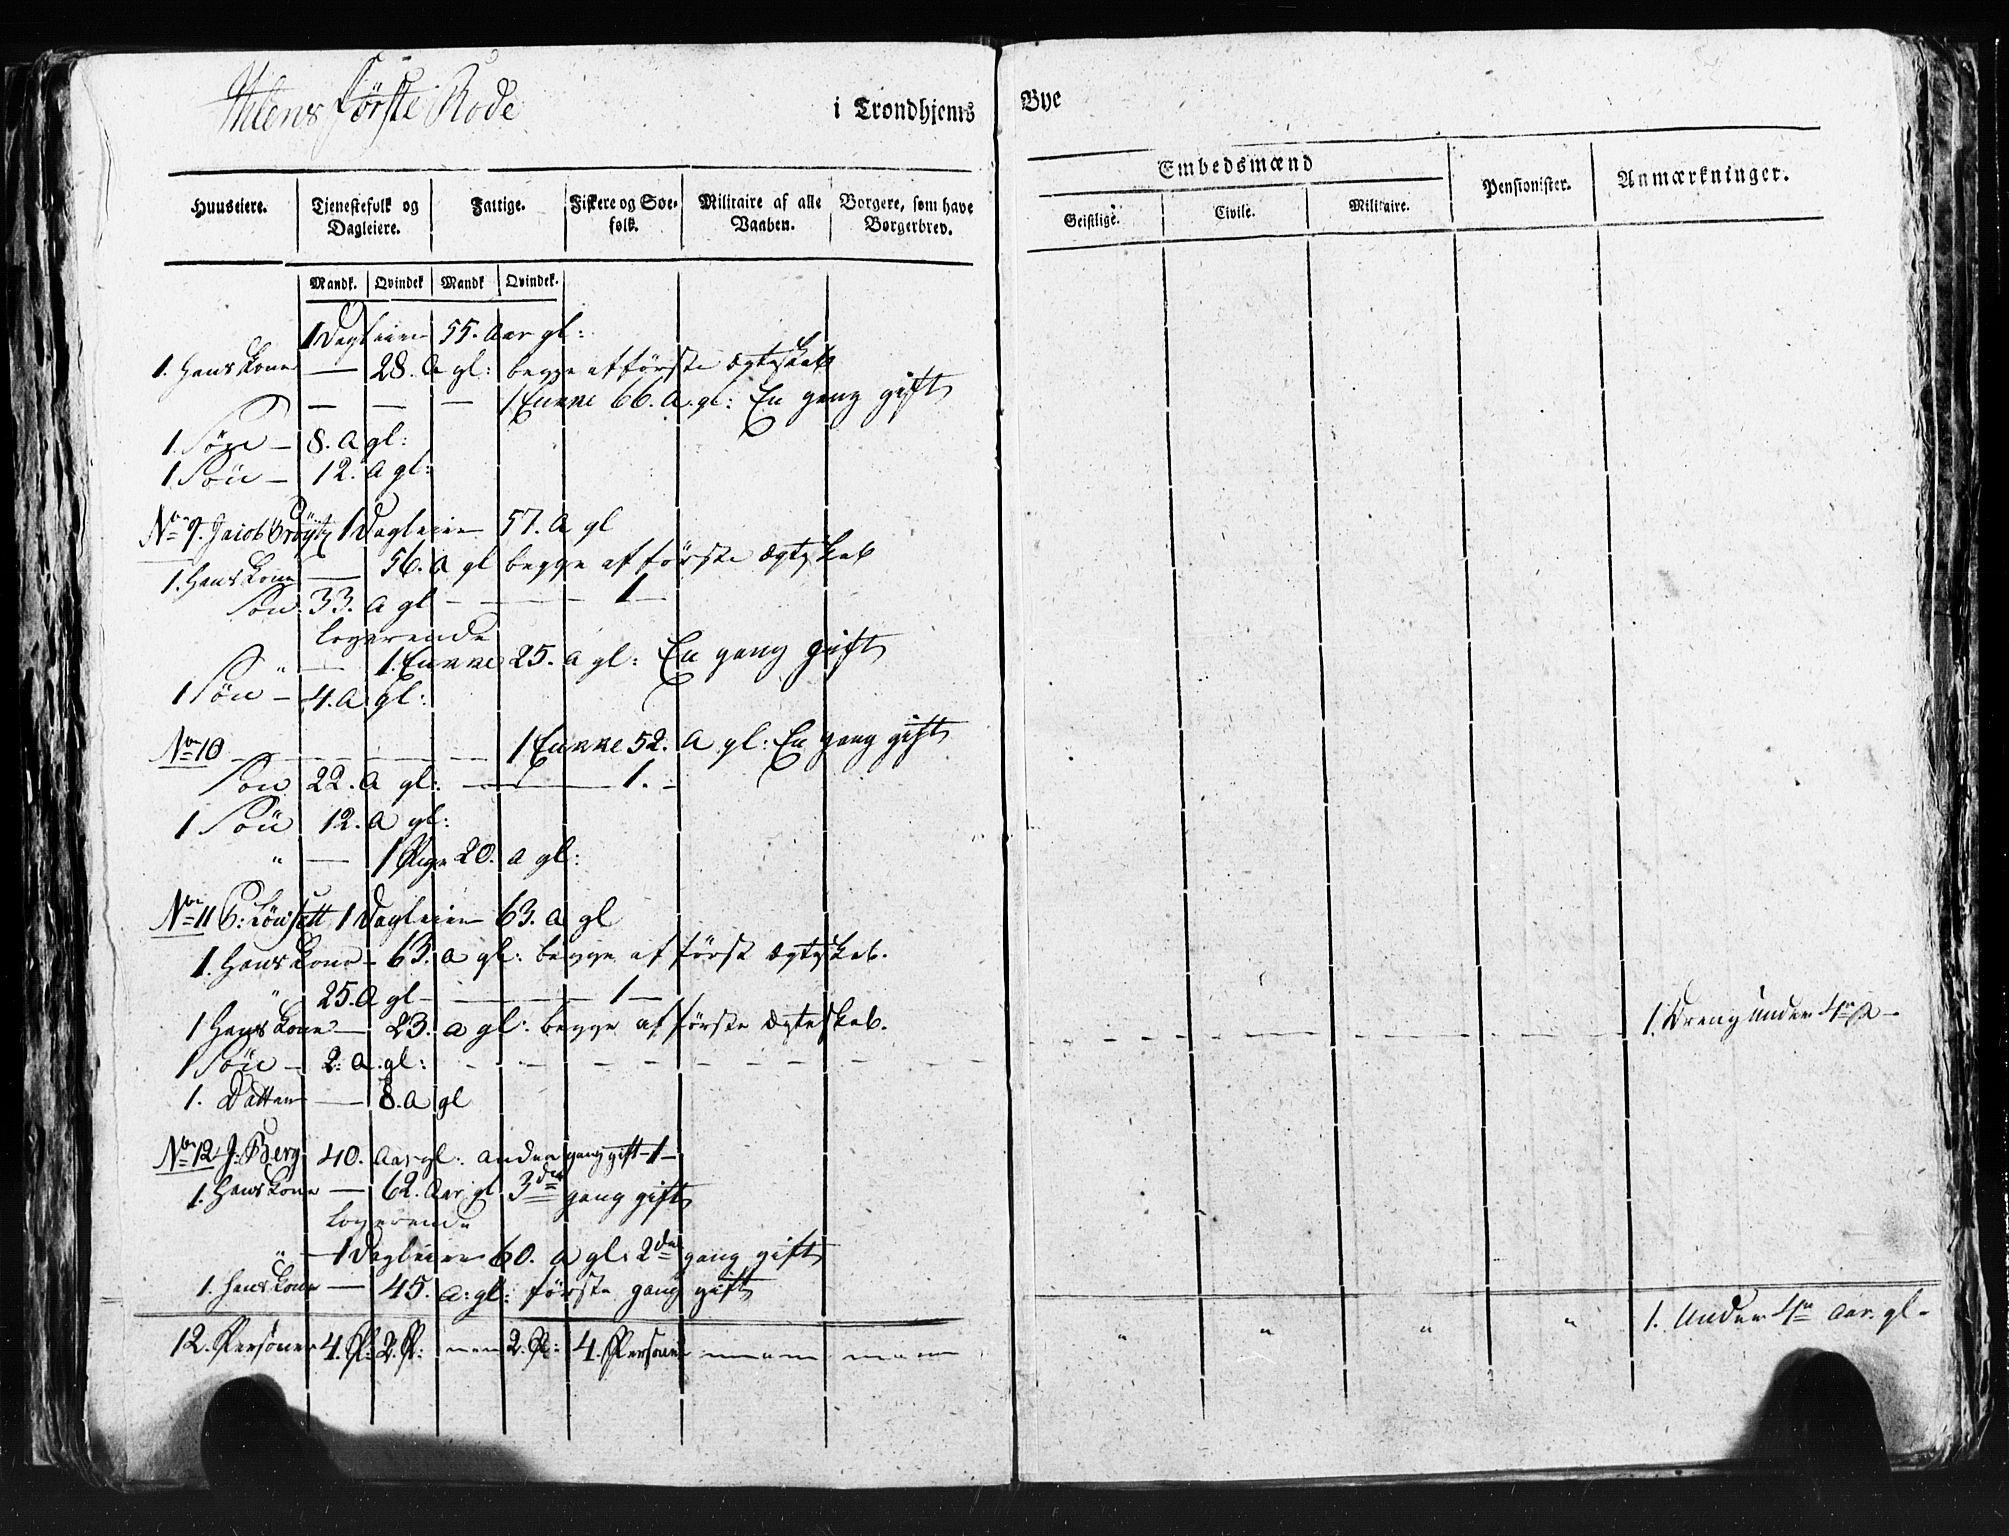 Ihlens første Rode i Trondhjems Bye
Huuseiere. Tjenestefolk og Dagleiere. Fattige. Fiskere og Søe-folk. Militaire af alle Vaaben. Borgere, som have Borgerbrev. Embedsmænd Pensionister. Anmærkninger.
Geistlige. Civile. Militaire.
Mandk. Qvindek Mandk Qvindek.
1 Dagleier 55. Aar gl:
1. Hans Kone — 28. A gl: begge af første Ægteskab
— — — 1 Enkke 66. A. gl: En gang gift
1. Søn — 8. A gl:
1 Søn — 12. A gl:
No 9. Jacob 1 Dagleier 57. A gl
1. Hans Kone — 56. A gl begge af første Ægteskab
Søn 33. A gl — — — 1 —
logerende
" — 1. Enkke 25. A gl: En gang gift
1 Søn — 4. A gl:
No 10 — — — — 1 Enkke 52. A gl: En gang gift
Søn 22. A gl: — — — 1. —
1 Søn 12. A gl:
" — 1 Pige 20. A gl:
No 11 1 Dagleier 63. A gl
1. Hans Kone — 63. A gl: begge af først Ægteskab.
" 25. A gl — — — 1 —
1 Hans Kone — 23. A gl: begge af første Ægteskab.
1 Søn — 2. A. gl: — — — — — — — — 1. Dreng under 4re A —
1. Datter — 8. A gl
No 12 J. Berg 40. Aar gl: anden gang gift — 1 —
1. Hans Kone — 62. Aar gl 3die gang gift
logerende
" — 1 Dagleier 60. A gl. 2den gang gift
1. Hans Kone — 45. A: gl: første gang gift
12. Personer 4. P: 2. P: 2. P: 4. Personer " " " " 1. Under 4re Aar. gl —